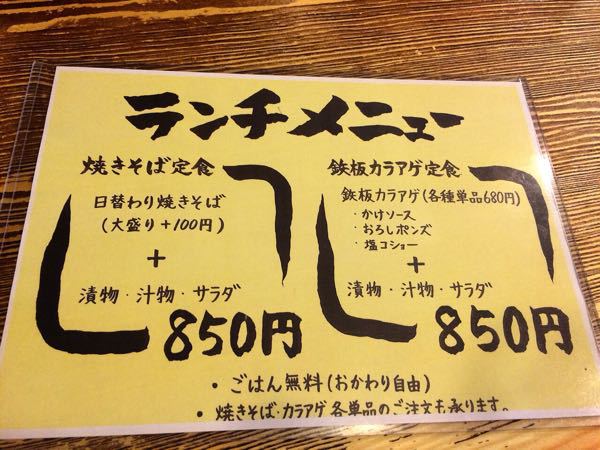 ランチメニュー
焼きそば定食
日替わり焼きそば
(大盛り+100円)
+
漬物・汁物・サラダ
850円
鉄板カラアゲ定食
鉄板カラアゲ(各種単品680円)
・かけソース
・おろしポンズ
・塩コショー
+
漬物・汁物・サラダ
850円
・ごはん無料(おかわり自由)
・焼きそば・カラアゲ各単品のご注文も承ります。